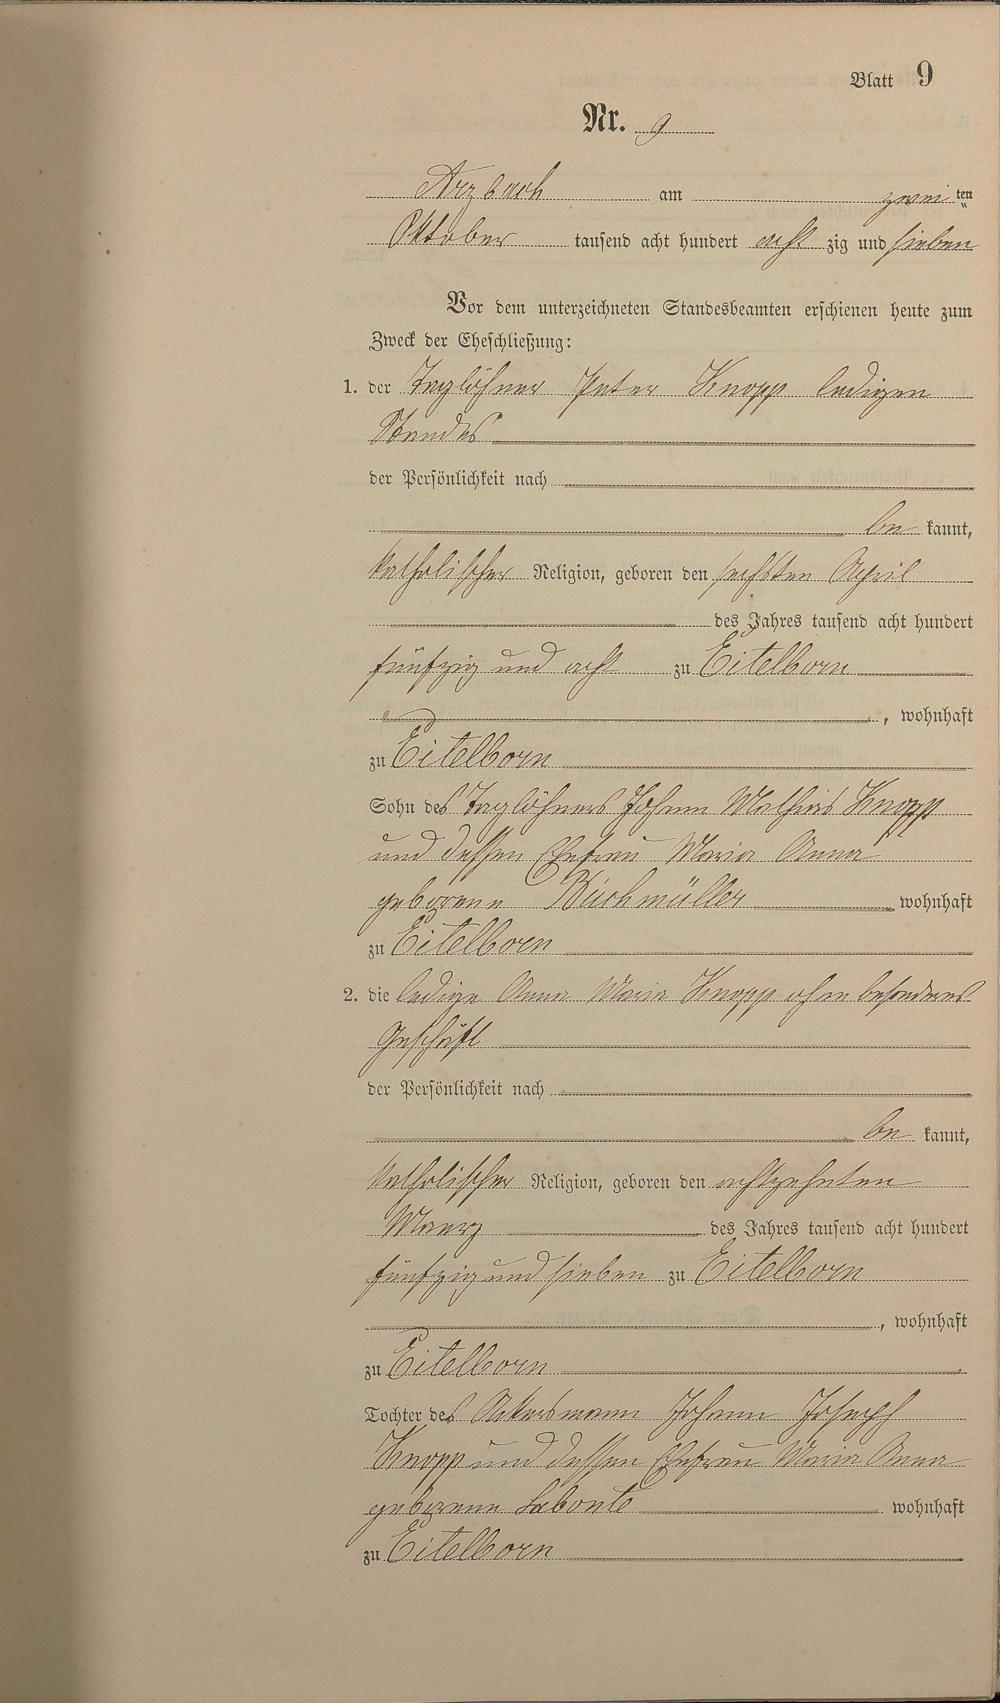 Blatt 9
Nr. 9
Arzbach am zweiten
Oktober tausend acht hundert acht zig und sieben
Vor dem unterzeichneten Standesbeamten erschienen heute zum
Zweck der Eheschließung:
1. der Taglöhner Peter Knopp ledigen
Standes
der Persönlichkeit nach
be kannt,
katholischer Religion, geboren den sechsten April
des Jahres tausend acht hundert
fünfzig und acht zu Eitelborn
, wohnhaft
zu Eitelborn
Sohn des Taglöhners Johann Mathias Knopp
und dessen Ehefrau Maria Anna
geborene Büchmüller wohnhaft
zu Eitelborn
2. die ledige Anna Maria Knopp ohne besonderes
Geschäft
der Persönlichkeit nach
be kannt,
katholischer Religion, geboren den achtzehnten
Maerz des Jahres tausend acht hundert
fünfzig und sieben zu Eitelborn
, wohnhaft
zu Eitelborn
Tochter des Ackersmann Johann Joseph
Knopp und dessen Ehefrau Maria Anna
geborene Labonte wohnhaft
zu Eitelborn